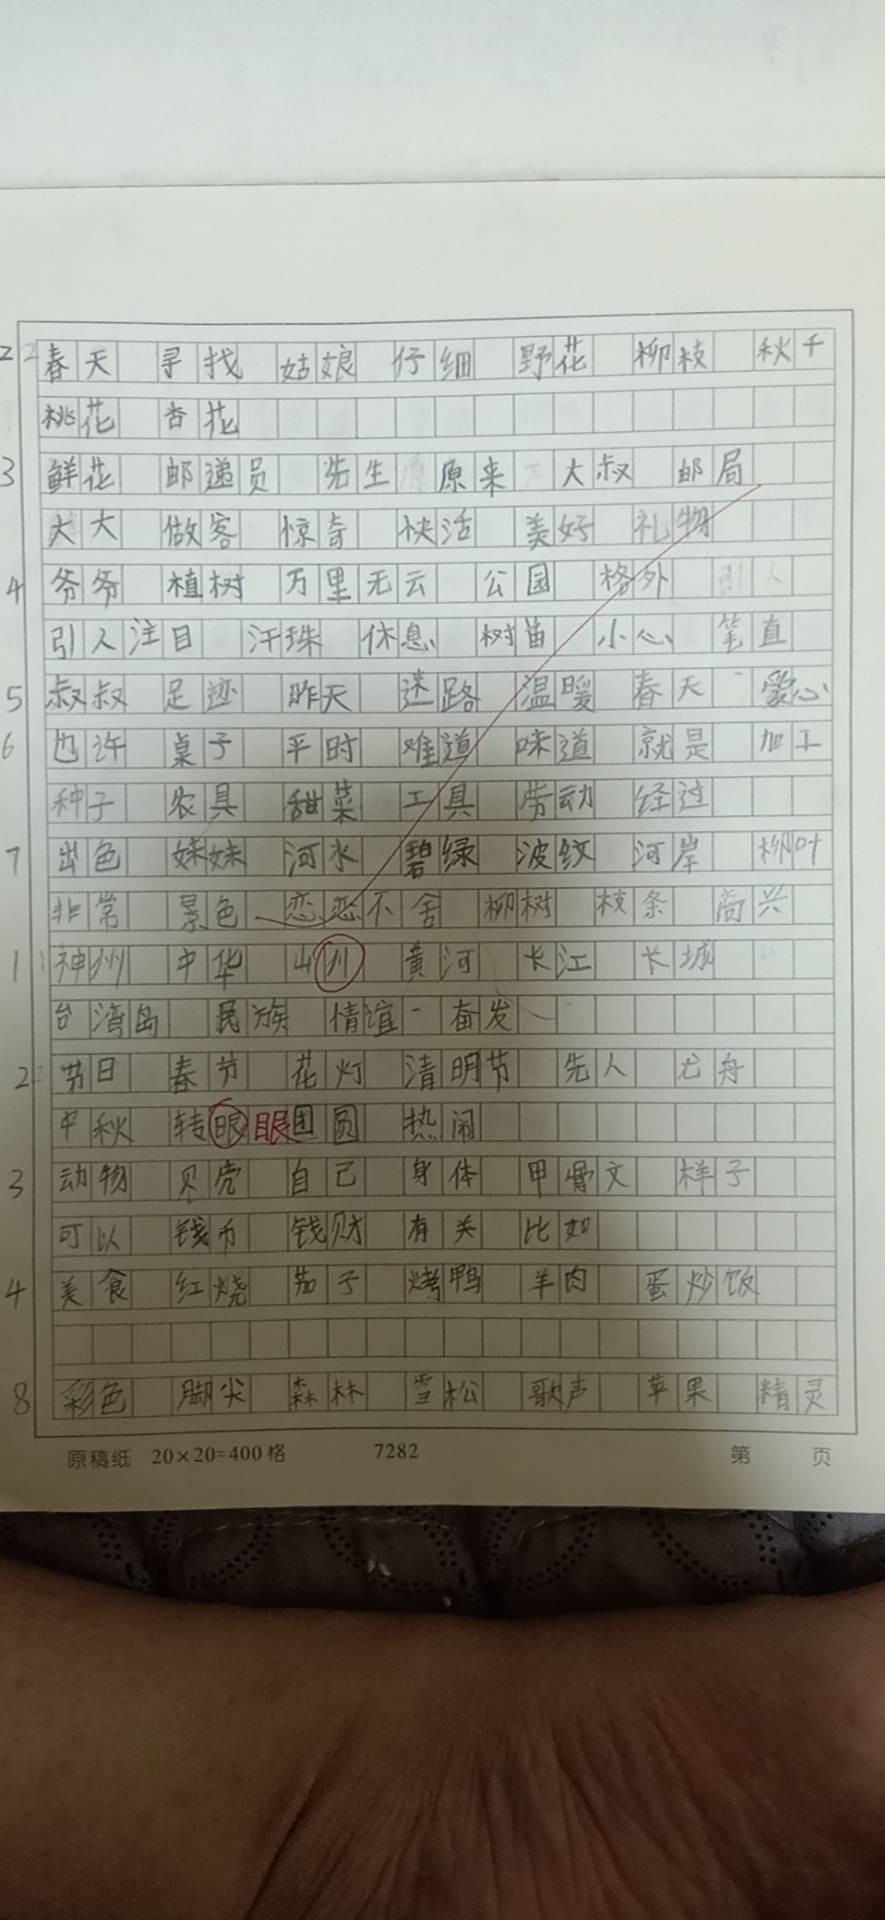 2 春天 寻找 姑娘 仔细 野花 柳枝 秋千
桃花 杏花
3 鲜花 邮递员 先生 原来 大叔 邮局
太太 做客 惊奇 快活 美好 礼物
4 爷爷 植树 万里无云 公园 格外 引人
引人注目 汗珠 休息 树苗 小心 笔直
5 叔叔 足迹 昨天 迷路 温暖 春天 爱心
6 也许 桌子 平时 难道 味道 就是 加工
种子 农具 甜菜 工具 劳动 经过
7 出色 妹妹 河水 碧绿 波纹 河岸 柳叶
非常 景色 恋恋不舍 柳树 枝条 高兴
1 神州 中华 山川 黄河 长江 长城
台湾岛 民族 情谊 奋发
2 节日 春节 花灯 清明节 先人 龙舟
中秋 转眼 眼 团圆 热闹
3 动物 贝壳 自己 身体 甲骨文 样子
可以 钱币 钱财 有关 比如
4 美食 红烧 茄子 烤鸭 羊肉 蛋炒饭
8 彩色 脚尖 森林 雪松 歌声 苹果 精灵
原稿纸 20×20=400格 7282 第 页